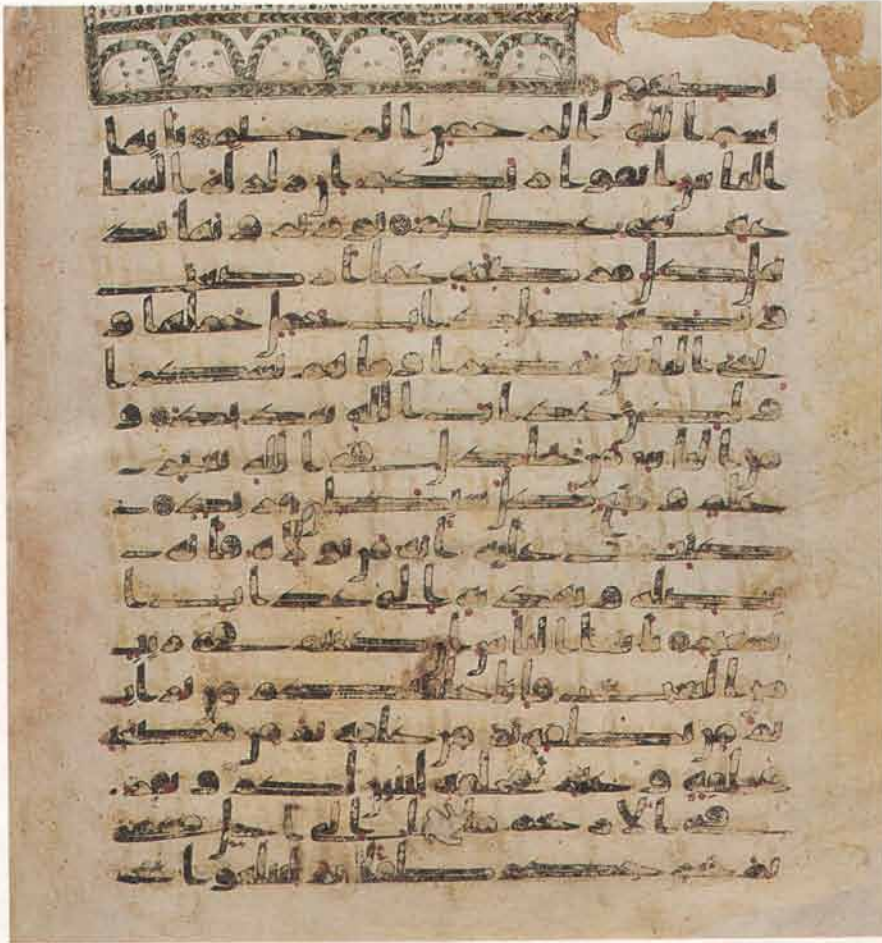 تصفون
بسم الله الرحمن الرحيم يايها
الناس اتقوا ربكم ان زلزلة السا
عة شي عظيم يوم ترونها تذ
هل كل مرضعة عما ا
رضعت وتضع كل ذات حمل حملها و
ترى الناس سكرى وما هم بسكرى
ولكن عذاب الله شديد و
من الناس من يجدل في الله بغير
علم ويتبع كل شيطن مريد كتب
عليه انه من تولاه فانه
يضله ويهديه الى عذاب ا
لسعير يايها الناس ان كنتم في ريب
من البعث فانا خلقنكم من تراب
ثم من نطفة ثم من علقة ثم من مضغة
مخلقة وغير مخلقة لنبين لكم ونقر
في الارحام ما نشا الى اجل مسمى
ثم نخرجكم طفلا ثم لتبلغوا اشد